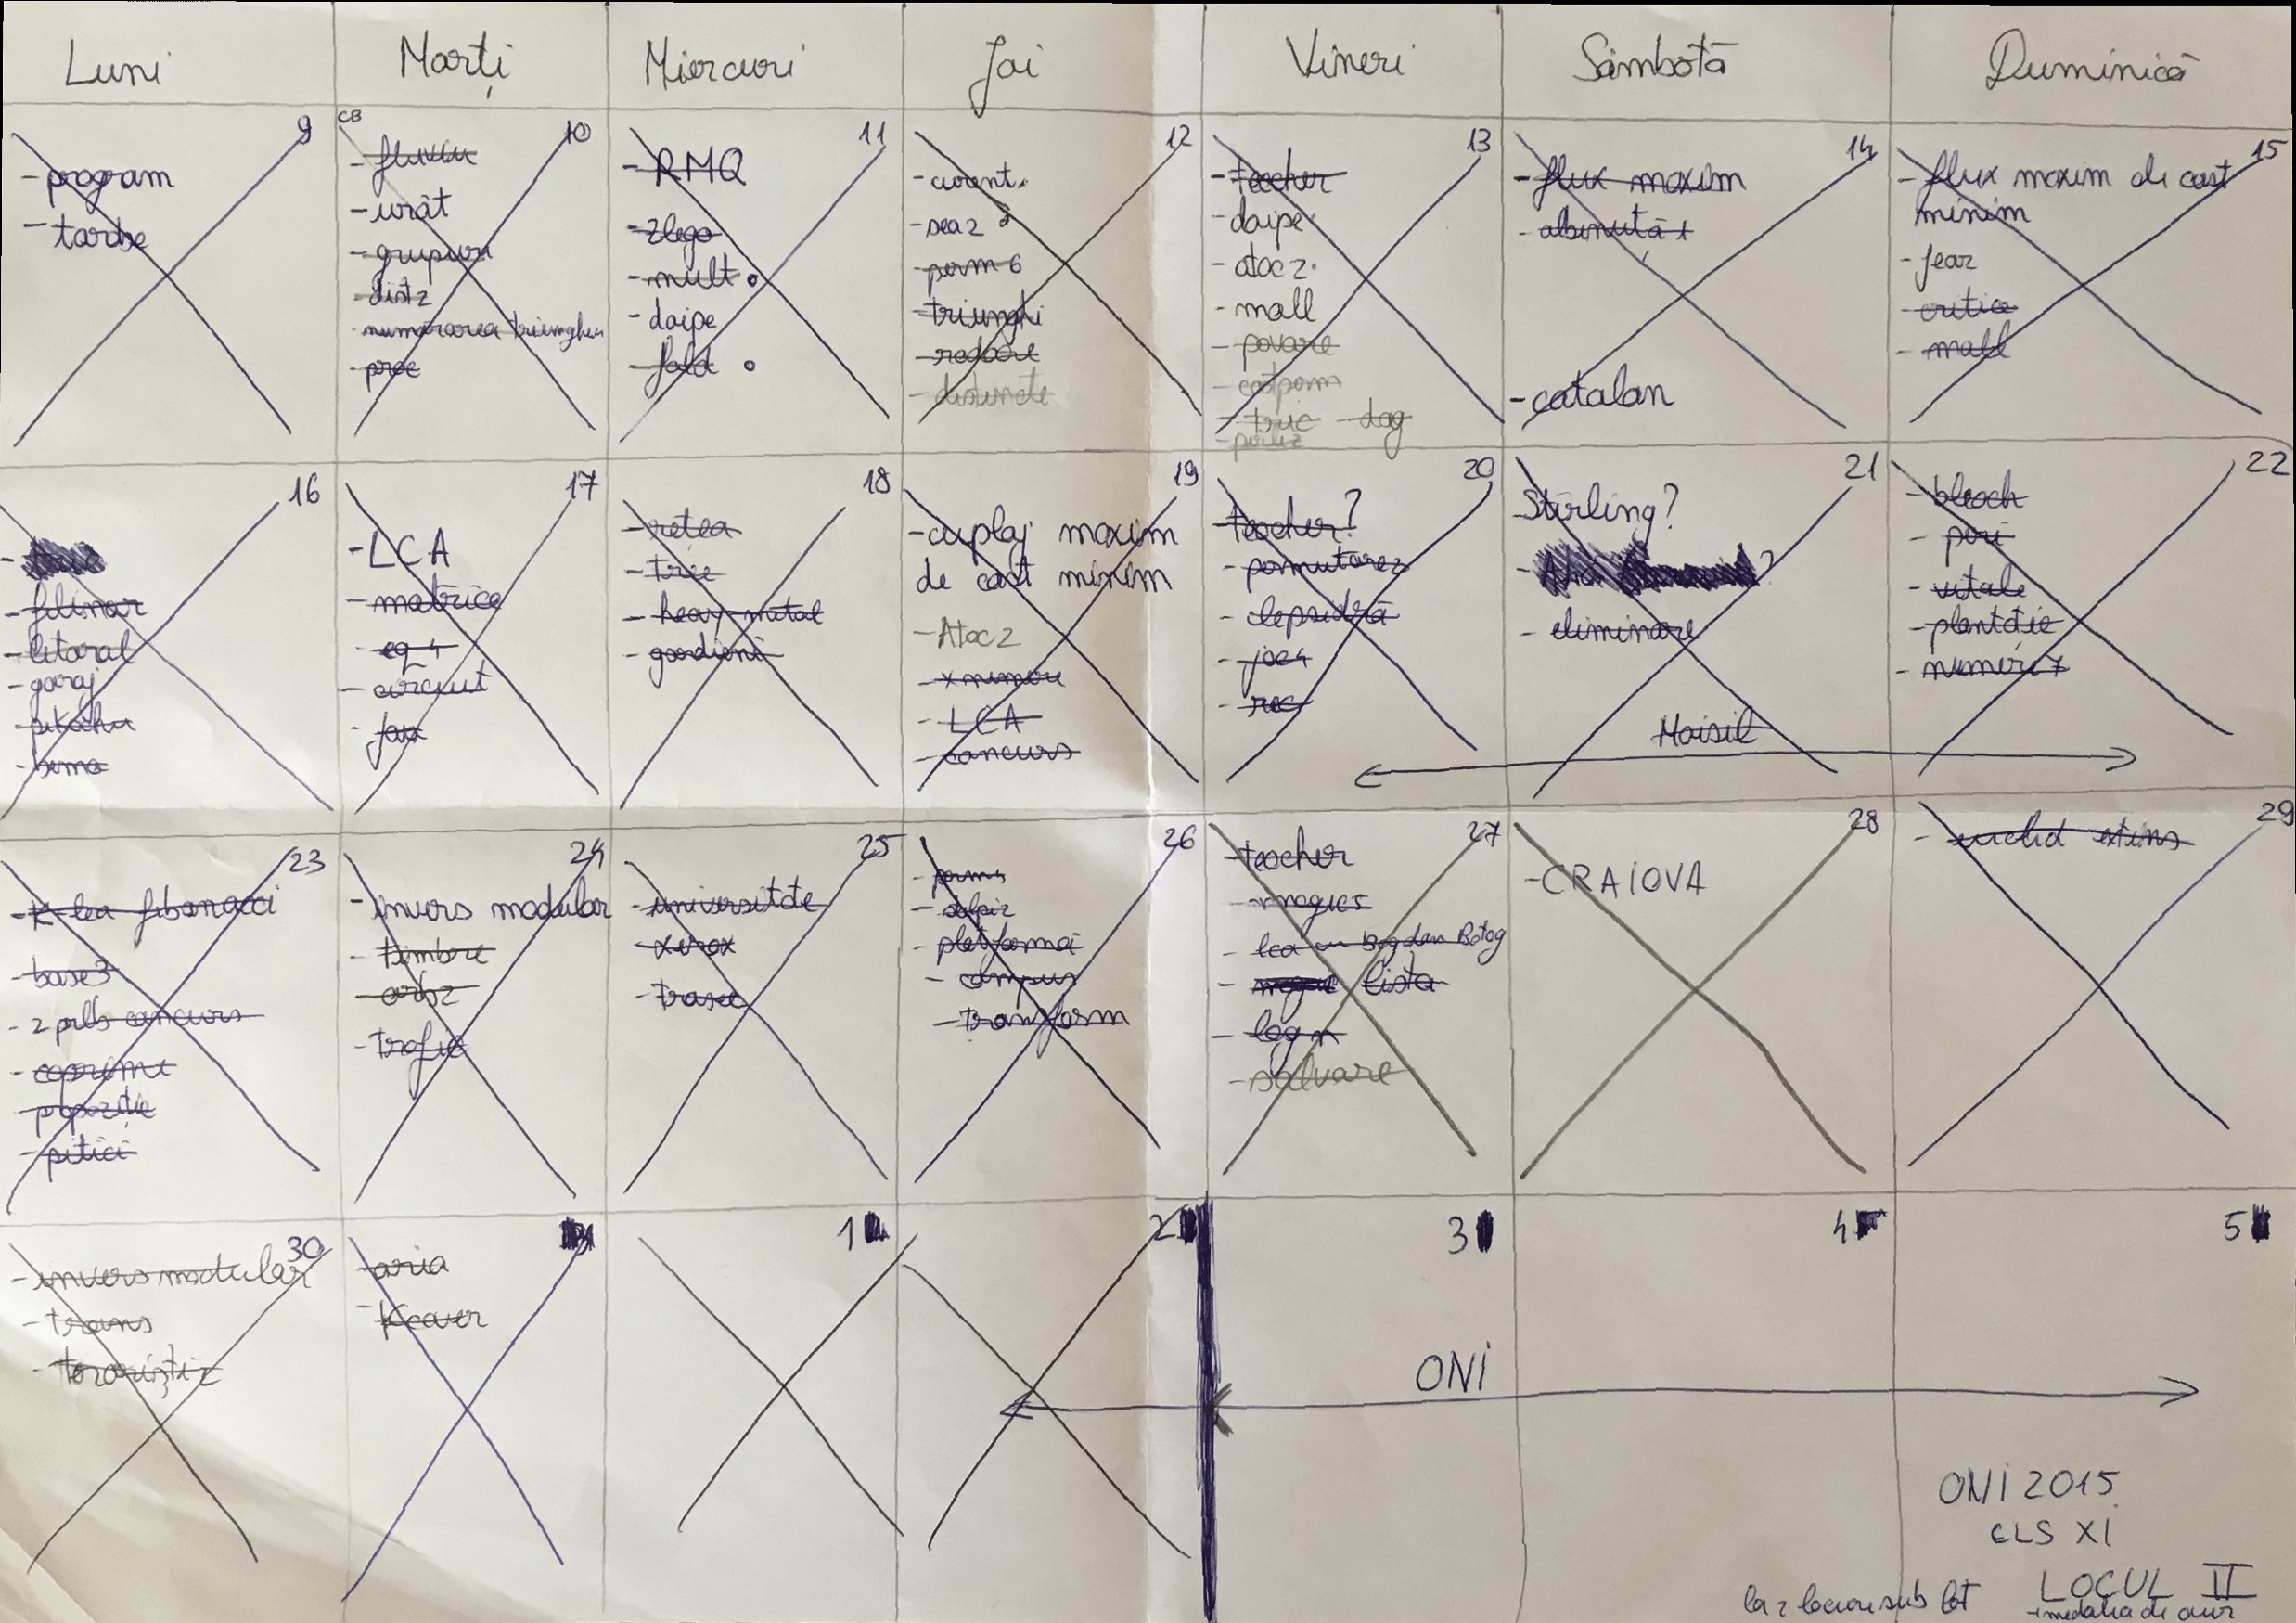 Luni Marți Miercuri Joi Vineri Sâmbătă Duminică
9
- program
- tarbe
CB 10
- fluviu
- urât
- grupuri
- dist2
- numărarea triunghiu
- proc
11
- RMQ
- zlego
- mult
- daipe
- fald
12
- curent
- sea2
- perm6
- triunghi
- radare
- distincte
13
- teacher
- daipe
- atac2
- mall
- pavare
- castperm
- truc - dag
14
- flux maxim
- albinuță 1
- catalan
15
- flux maxim de cost
minim
- fear
- critice
- mall
16
- filinar
- litoral
- garaj
- pikachu
- sume
17
- LCA
- matrice
- eq4
- circuit
- fax
18
- rețea
- trie
- heavy metal
- gardieni
19
- cuplaj maxim
de cost minim
- Atac2
- xnumere
- LCA
- concurs
20
- teacher?
- permutare2
- clepsidră
- joc4
- rec
21
Stirling?
- eliminare
Moisil
22
- bleach
- piri
- vitale
- plantație
- numere7
23
- K-lea fibonacci
- base3
- 2 prlb concurs
- coprime
- pitici
24
- invers modular
- timbre
- arb2
- trafic
25
- universitate
- xerox
- traseu
26
- perm4
- platformei
- campus
- transform
27
- teacher
- magic5
- lca cu Bogdan Botog
- lista
- log n
- salvare
28
- CRAIOVA
29
- euclid extins
30
- invers modular
- trans
- teroriști2
- aria
- Kcover
1
2
3
4
5
ONI
ONI 2015
CLS XI
LOCUL II
- medalia de aur
la 2 locuri sub lot